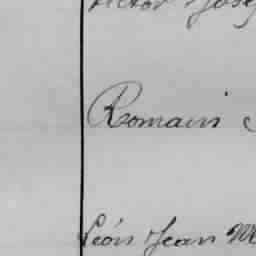 Victor Jose
Romain
Léon Jean M